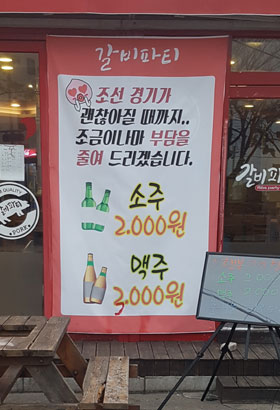 갈비파티
조선 경기가
괜찮아질 때까지..
조금이나마 부담을
줄여 드리겠습니다.
소주
2.000원
맥주
3,000원
QUALITY
갈비파티
PORK
갈비파티